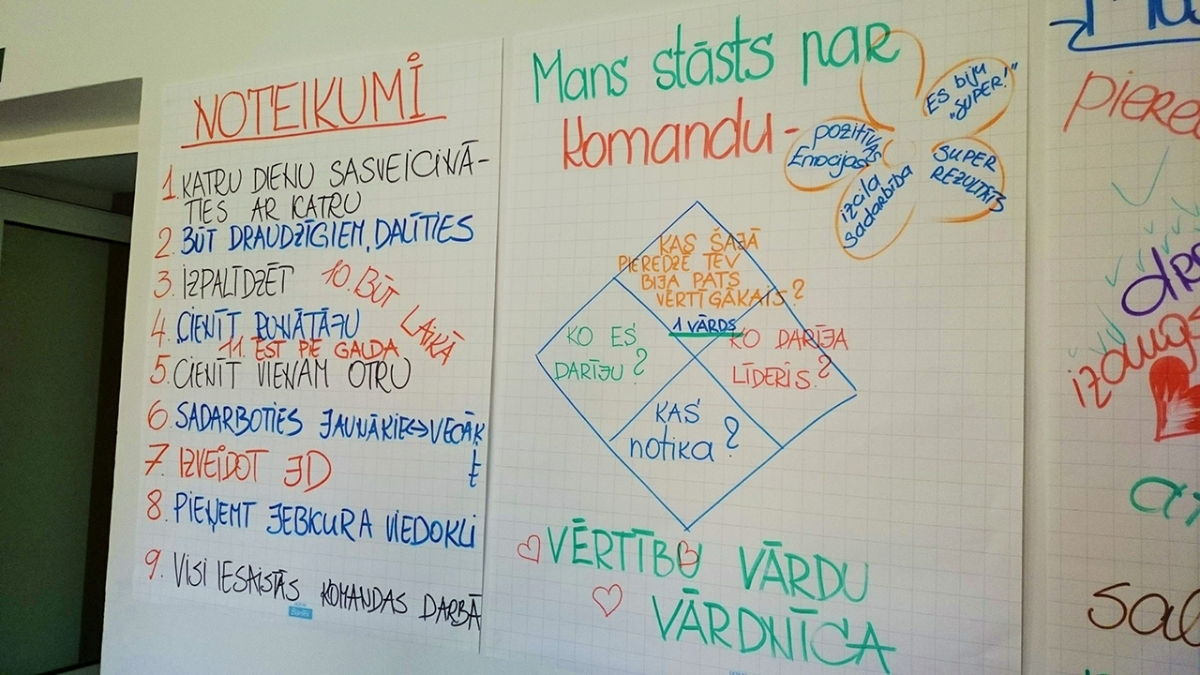 NOTEIKUMI
1. KATRU DIENU SASVEICINĀ-
TIES AR KATRU
2. BŪT DRAUDZĪGIEM, DALĪTIES
3. IZPALĪDZĒT
10. BŪT LAIKĀ
4. CIENĪT RUNĀTĀJU
11. ĒST PIE GALDA
5. CIENĪT VIENAM OTRU
6. SADARBOTIES JAUNĀKIE↔VECĀK
7. IZVEIDOT JD
8. PIEŅEMT JEBKURA VIEDOKLI
9. VISI IESAISTĀS KOMANDAS DARBĀ
Mans stāsts par
komandu -
pozitīvas
Emocijas
izcila
sadarbība
SUPER
REZULTĀTS
ES biju
"SUPER!"
KAS ŠAJĀ
PIEREDZĒ TEV
BIJA PATS
VĒRTĪGĀKAIS?
1 VĀRDS
KO ES
DARĪJU?
KO DARĪJA
LĪDERIS?
KAS
notika?
VĒRTĪBU VĀRDU
VĀRDNĪCA
piere
dr
izaugs
sa